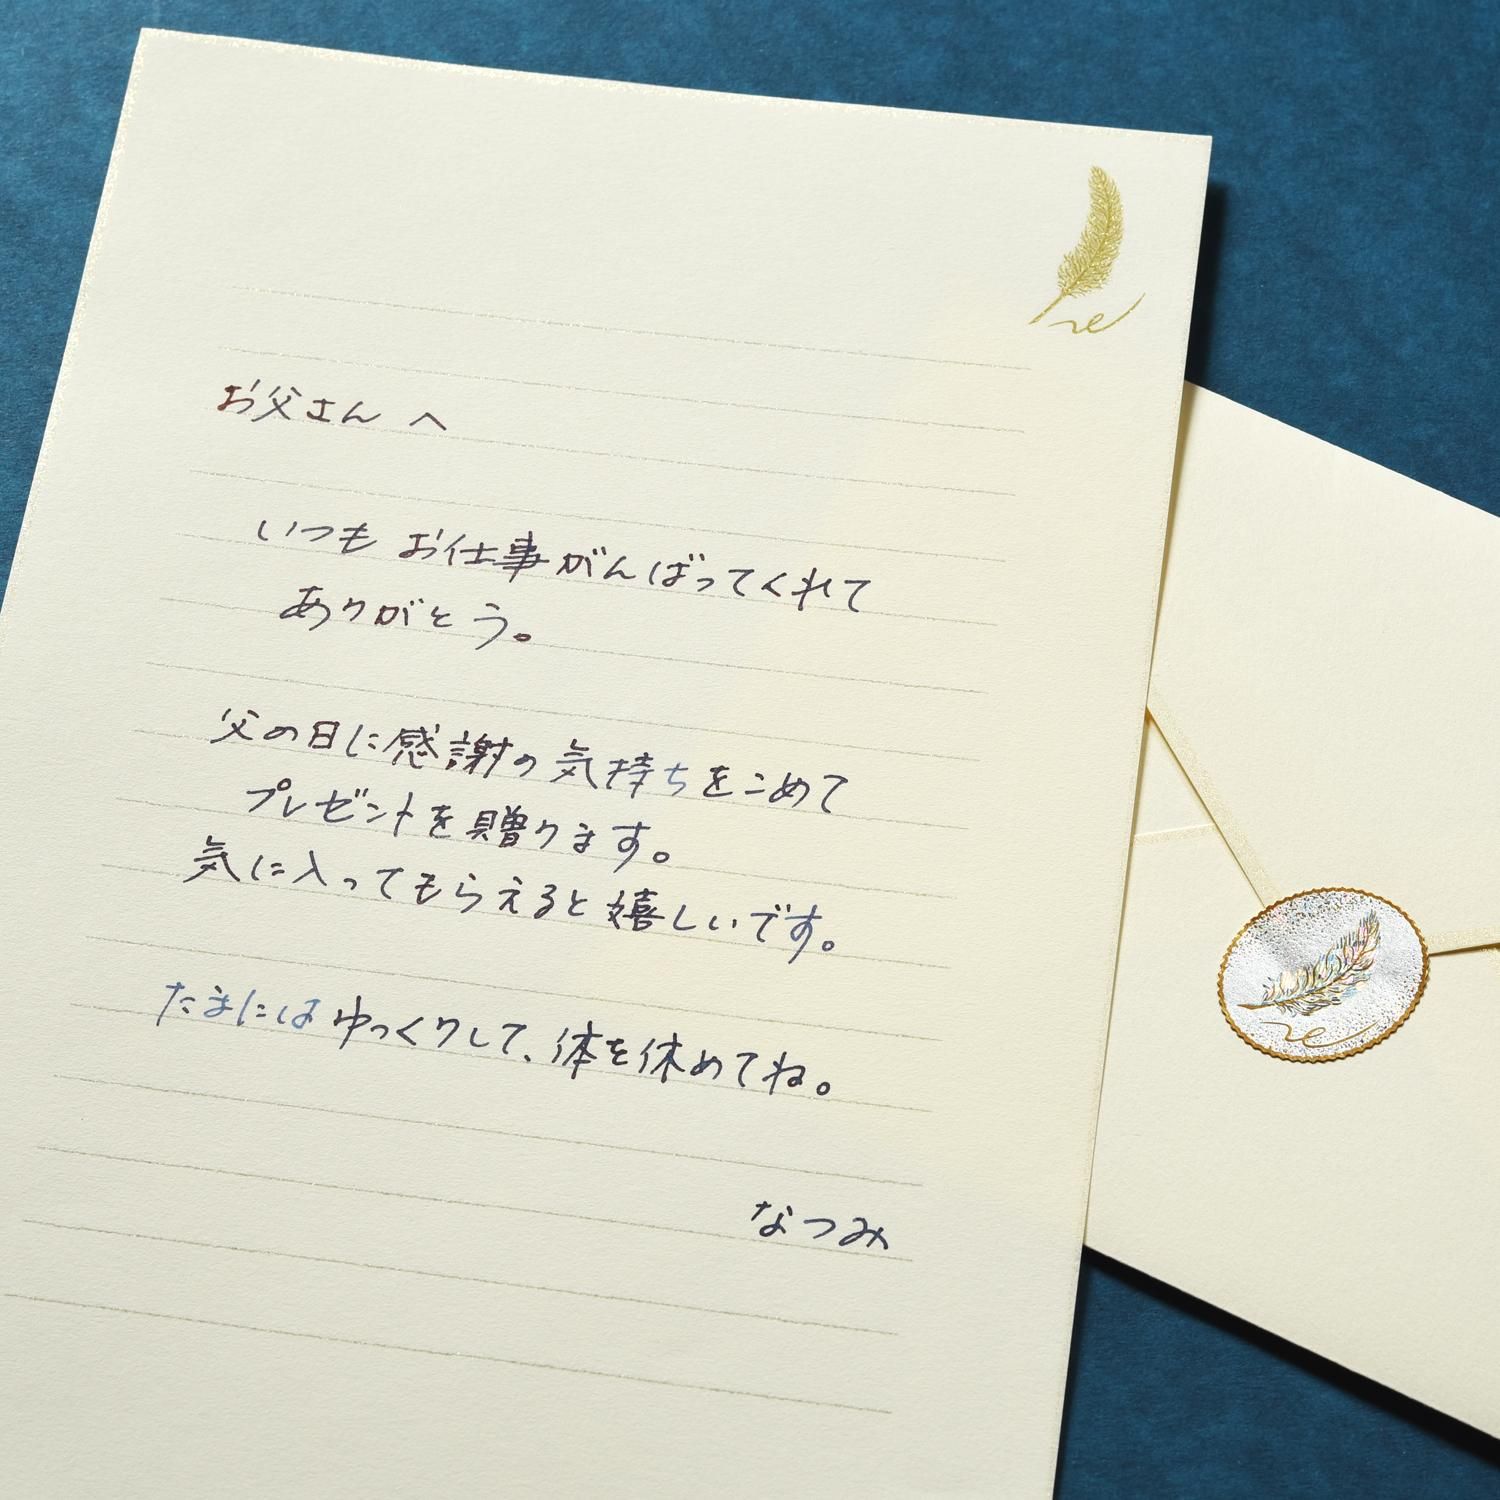 お父さん へ
いつも お仕事がんばってくれて
ありがとう。
父の日に感謝の気持ちをこめて
プレゼントを贈ります。
気に入ってもらえると嬉しいです。
たまにはゆっくりして、体を休めてね。
なつみ